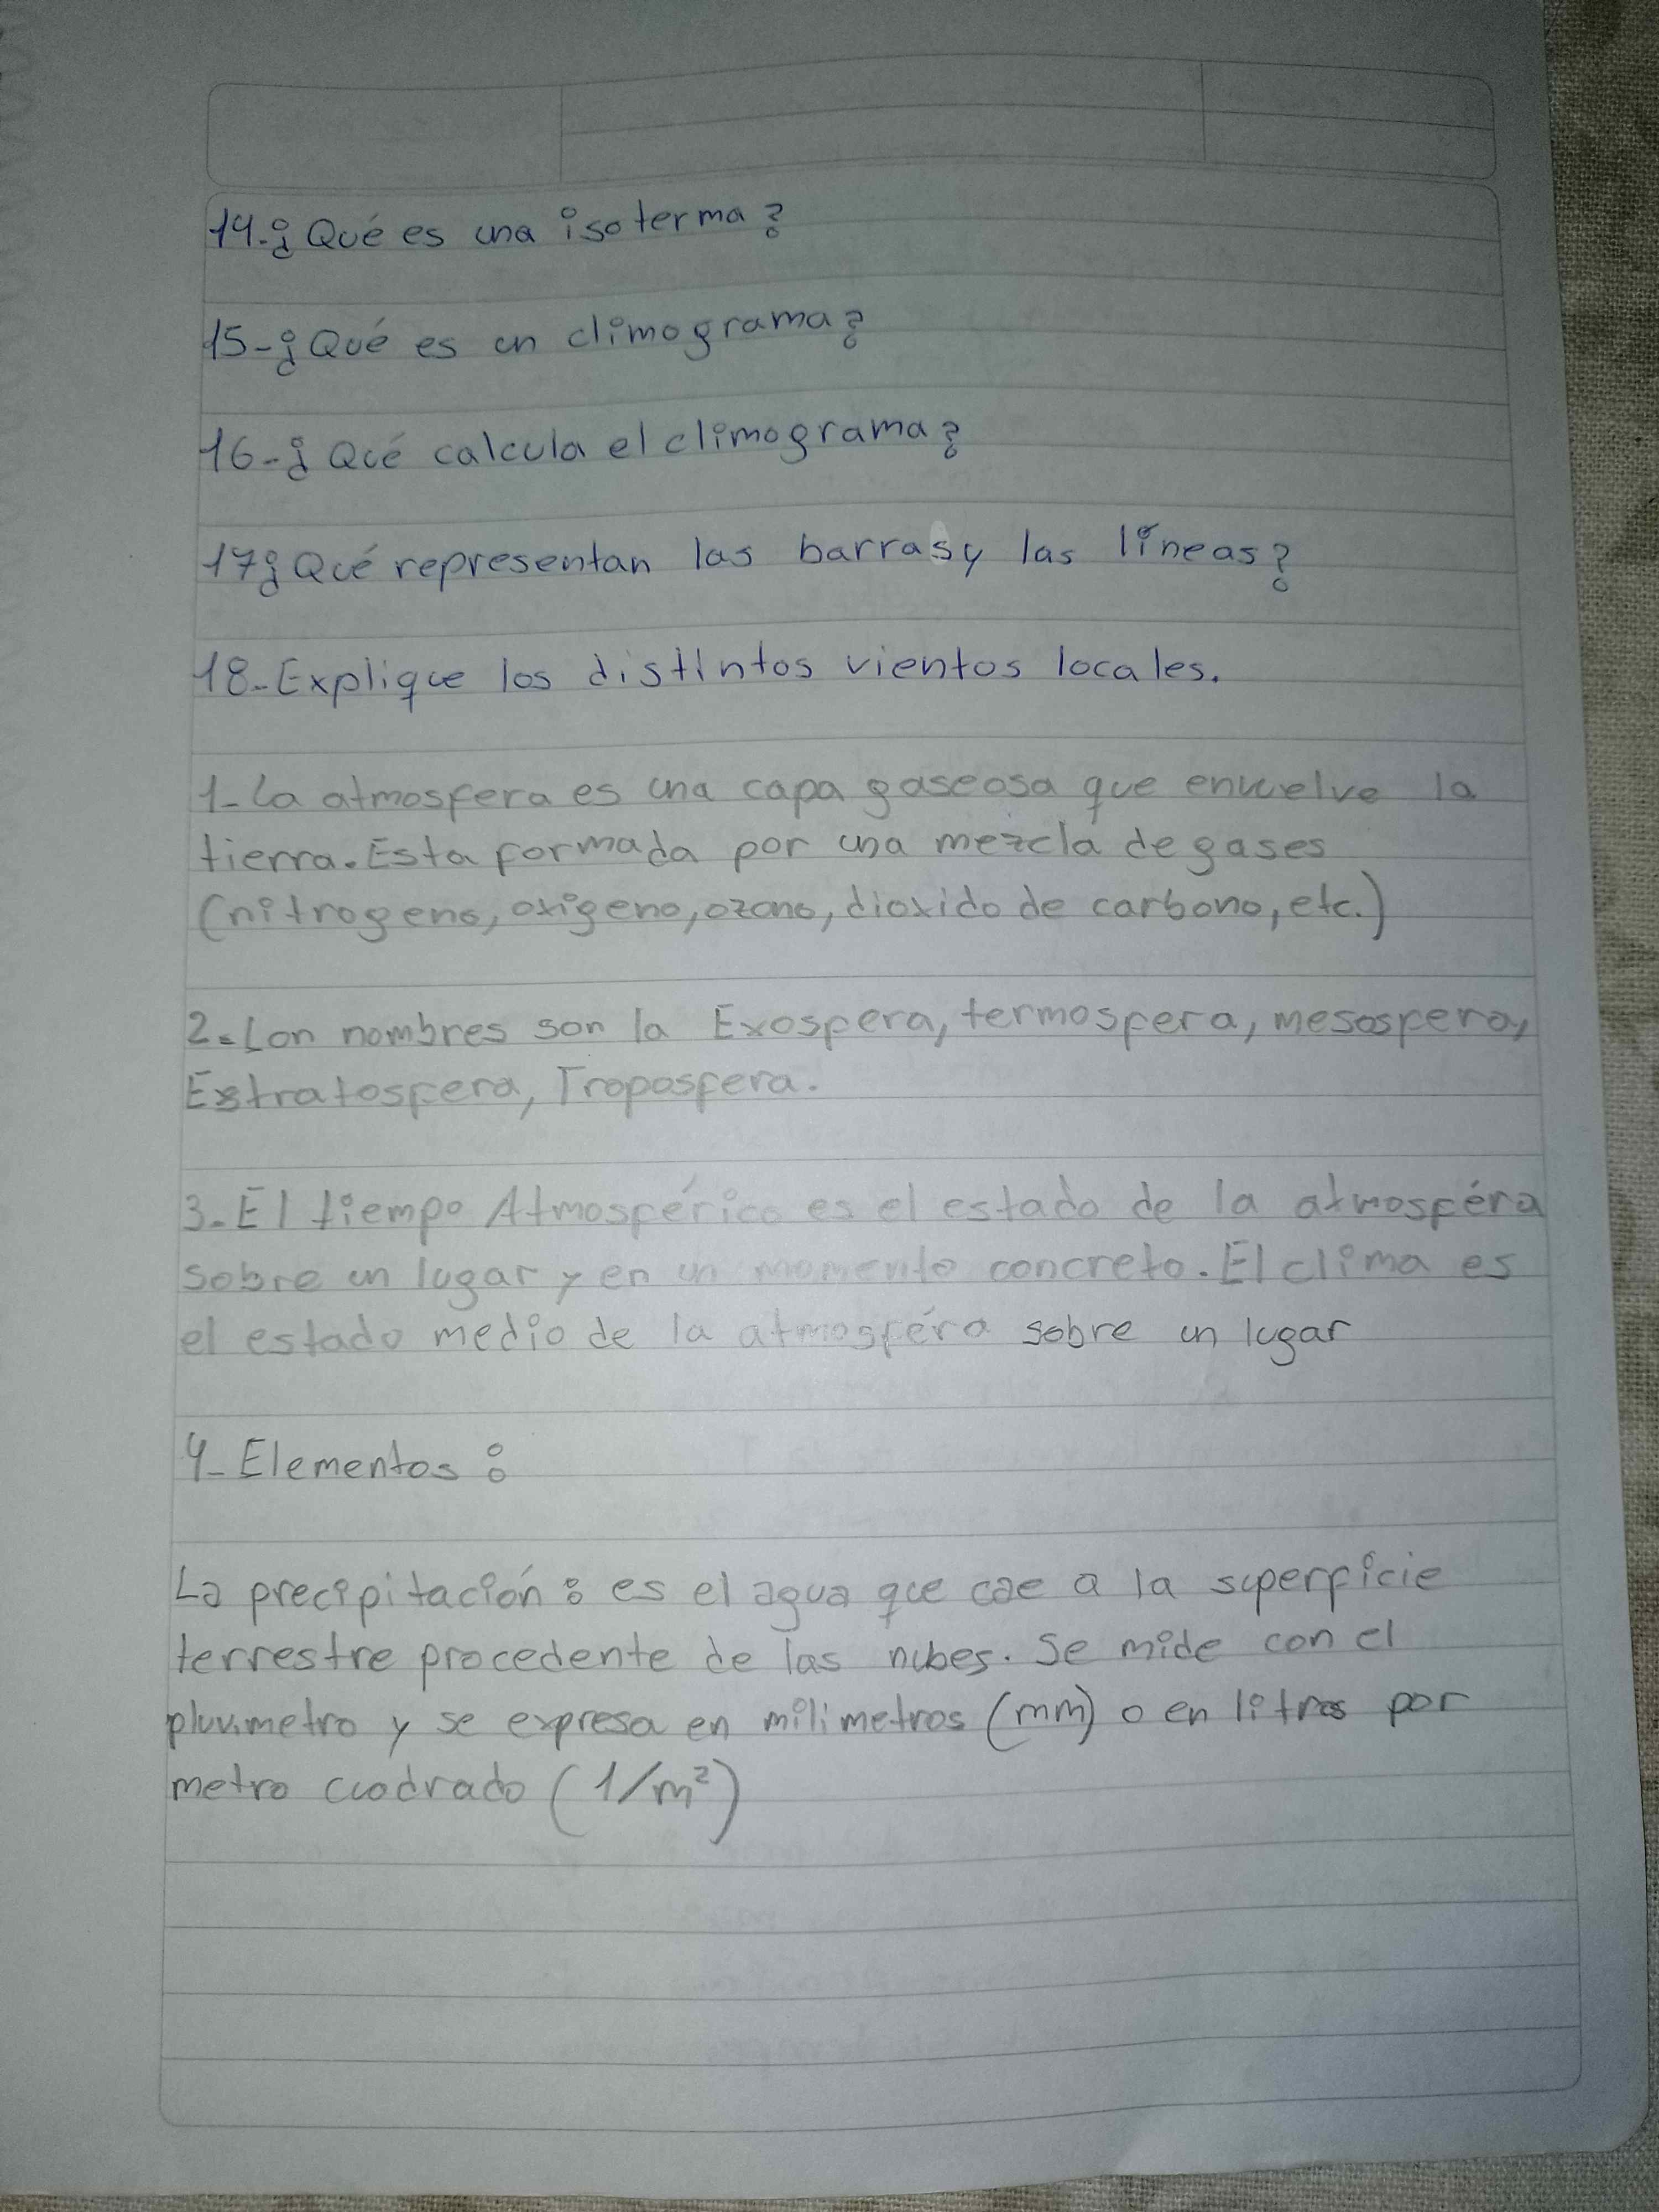 14.¿Qué es una isoterma?
15-¿Qué es un climograma?
16-¿Qué calcula el climograma?
17¿Qué representan las barras y las líneas?
18-Explique los distintos vientos locales.
1-La atmosfera es una capa gaseosa que envuelve la
tierra. Esta formada por una mezcla de gases
(nitrogeno, oxigeno, ozono, dioxido de carbono, etc.)
2-Lon nombres son la Exosfera, termosfera, mesosfera,
Estratosfera, Troposfera.
3-El tiempo Atmosférico es el estado de la atmosféra
sobre un lugar y en un momento concreto. El clima es
el estado medio de la atmosféra sobre un lugar
4-Elementos:
La precipitación: es el agua que cae a la superficie
terrestre procedente de las nubes. Se mide con el
pluvimetro y se expresa en milimetros (mm) o en litros por
metro cuadrado (1/m²)